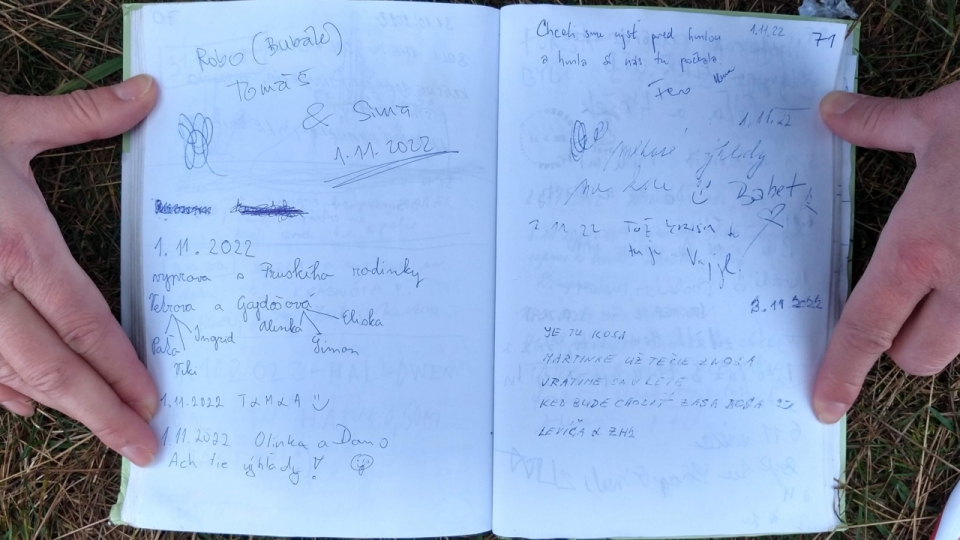 Robo (Bubák)
Tomáš
& Sima
1.11.2022
1.11.2022
výprava s Fruskiho rodinky
Petrova a Gajdošová
Paľa Ingrid Alenka Eliška
Viki Šimon
1.11.2022 T&M&A
1.11.2022 Olinka a Dano
Ach tie výhľady!
71
1.11.22
Chceli sme ujsť pred hmlou
a hmla si nás tu počkala.
Fero
1.11.22
výhľady
Babet
2.11.22
tu je
3.11 2022
JE TU KOSA
MARTINKE UŽ TEČIE Z NOSA
VRÁTIME SA V LÉTE
KEĎ BUDE CHODIŤ ZASA BOSA
LEVIČA & ZH2